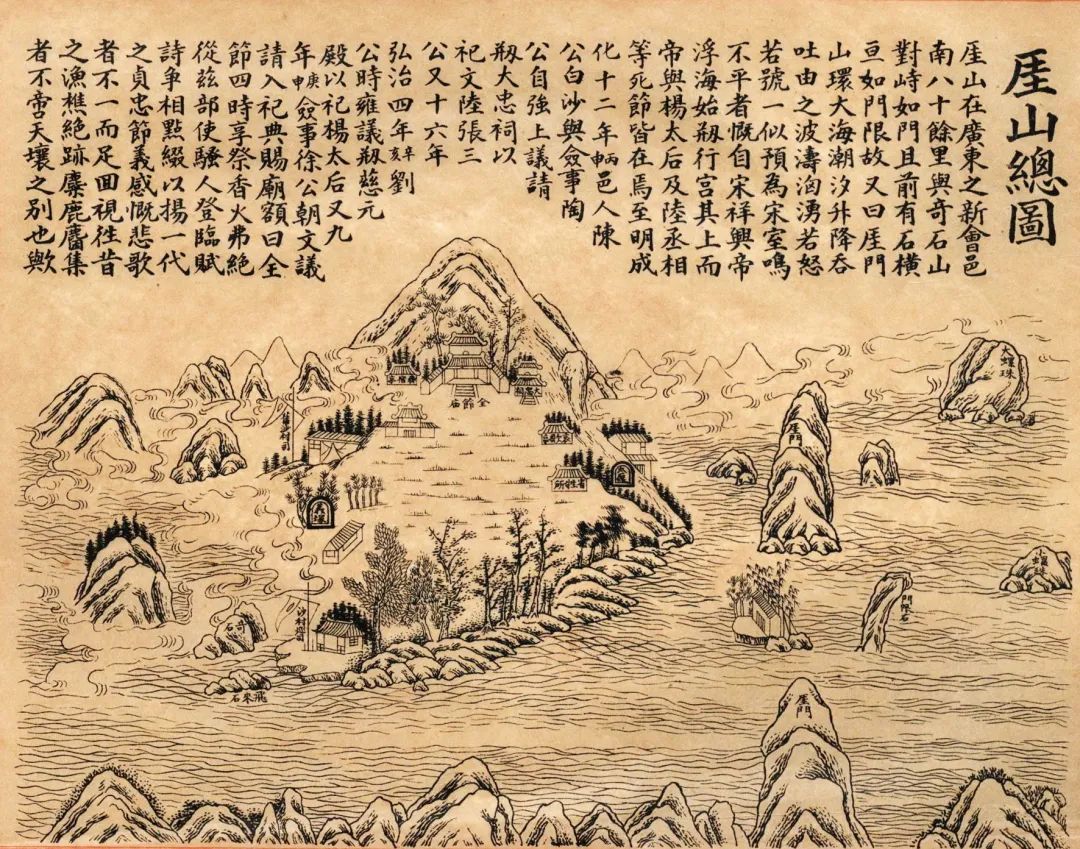 厓山總圖
厓山在廣東之新會邑
南八十餘里與奇石山
對峙如門且前有石橫
亘如門限故又曰厓門
山環大海潮汐升降吞
吐由之波濤洶湧若怒
若號一似預為宋室鳴
不平者慨自宋祥興帝
浮海始剏行宮其上而
帝與楊太后及陸丞相
等死節皆在焉至明成
化十二年丙申邑人陳
公白沙與僉事陶
公自強上議請
剏大忠祠以
祀文陸張三
公又十六年
弘治四年辛亥劉
公時雍議剏慈元
殿以祀楊太后又九
年庚申僉事徐公朝文議
請入祀典賜廟額曰全
節四時享祭香火弗絕
從茲部使騷人登臨賦
詩爭相點綴以揚一代
之貞忠節義感慨悲歌
者不一而足回視徃昔
之漁樵絕跡麋鹿麕集
者不啻天壤之別也歟
全節庙
厓門
省牲所
門限石
飛來石
厓門